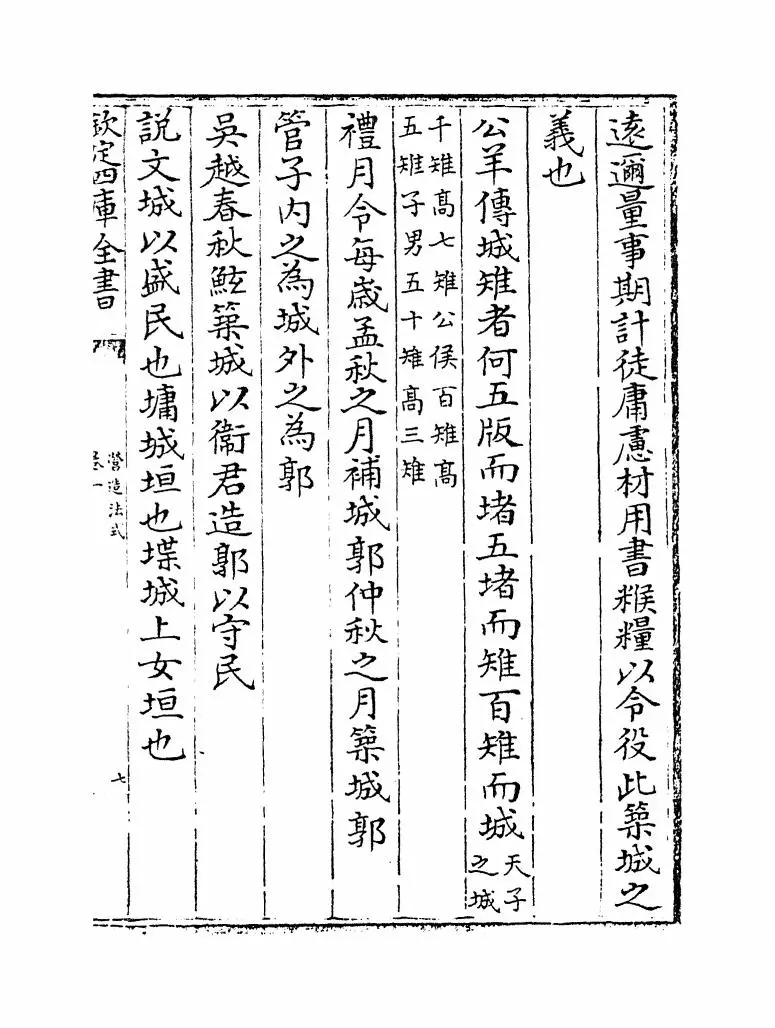 逺邇量事期計徒庸慮材用書糇糧以令役此築城之
義也
公羊傳城雉者何五版而堵五堵而雉百雉而城天子之城
千雉髙七雉公侯百雉髙
五雉子男五十雉髙三雉
禮月令每嵗孟秋之月補城郭仲秋之月築城郭
管子内之為城外之為郭
吳越春秋鮌築城以衞君造郭以守民
説文城以盛民也墉城垣也堞城上女垣也
欽定四庫全書
營造法式
卷一
七